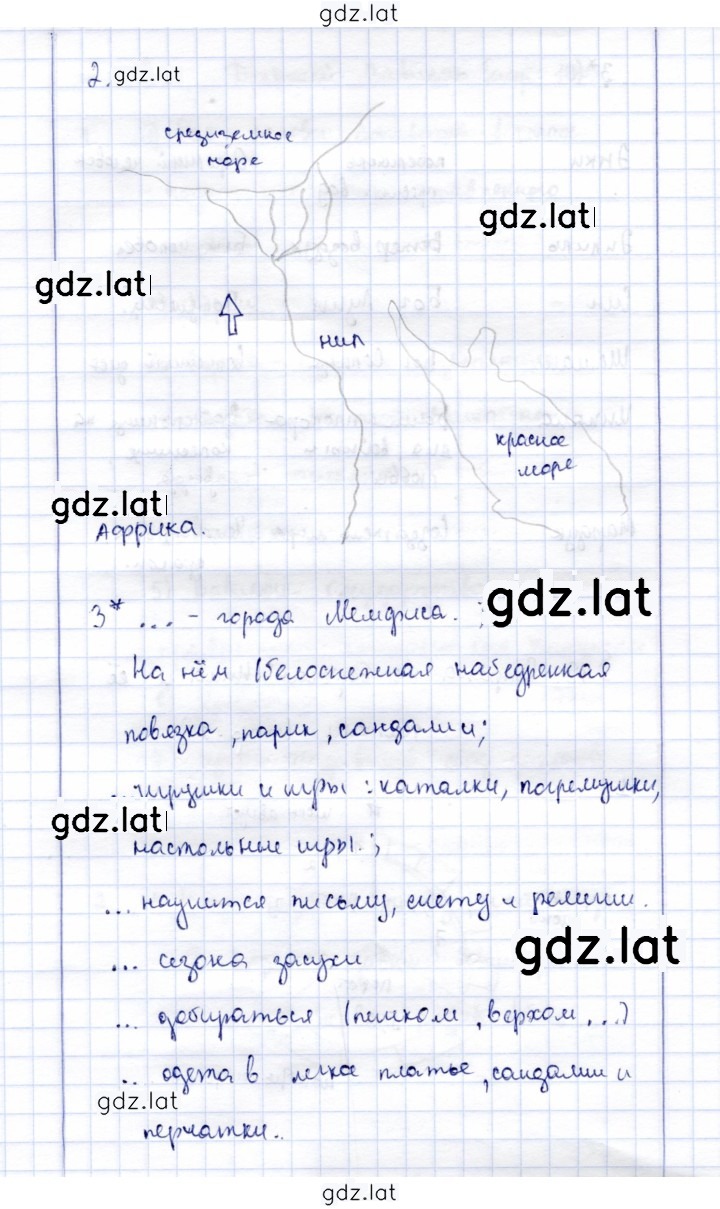 gdz.lat
2. gdz.lat
средиземное
море
gdz.lat
gdz.lat
нил
красное
море
gdz.lat
Африка.
3* ... - города Мемфиса. ;
gdz.lat
На нём (белоснежная набедренная
повязка, парик, сандалии;
.. игрушки и игры : каталки, погремушки,
gdz.lat
настольные игры. ;
... научится письму, счету и религии.
gdz.lat
... сезона засухи
... добираться (пешком, верхом, ...)
.. одета в легкое платье, сандалии и
gdz.lat
перчатки..
gdz.lat